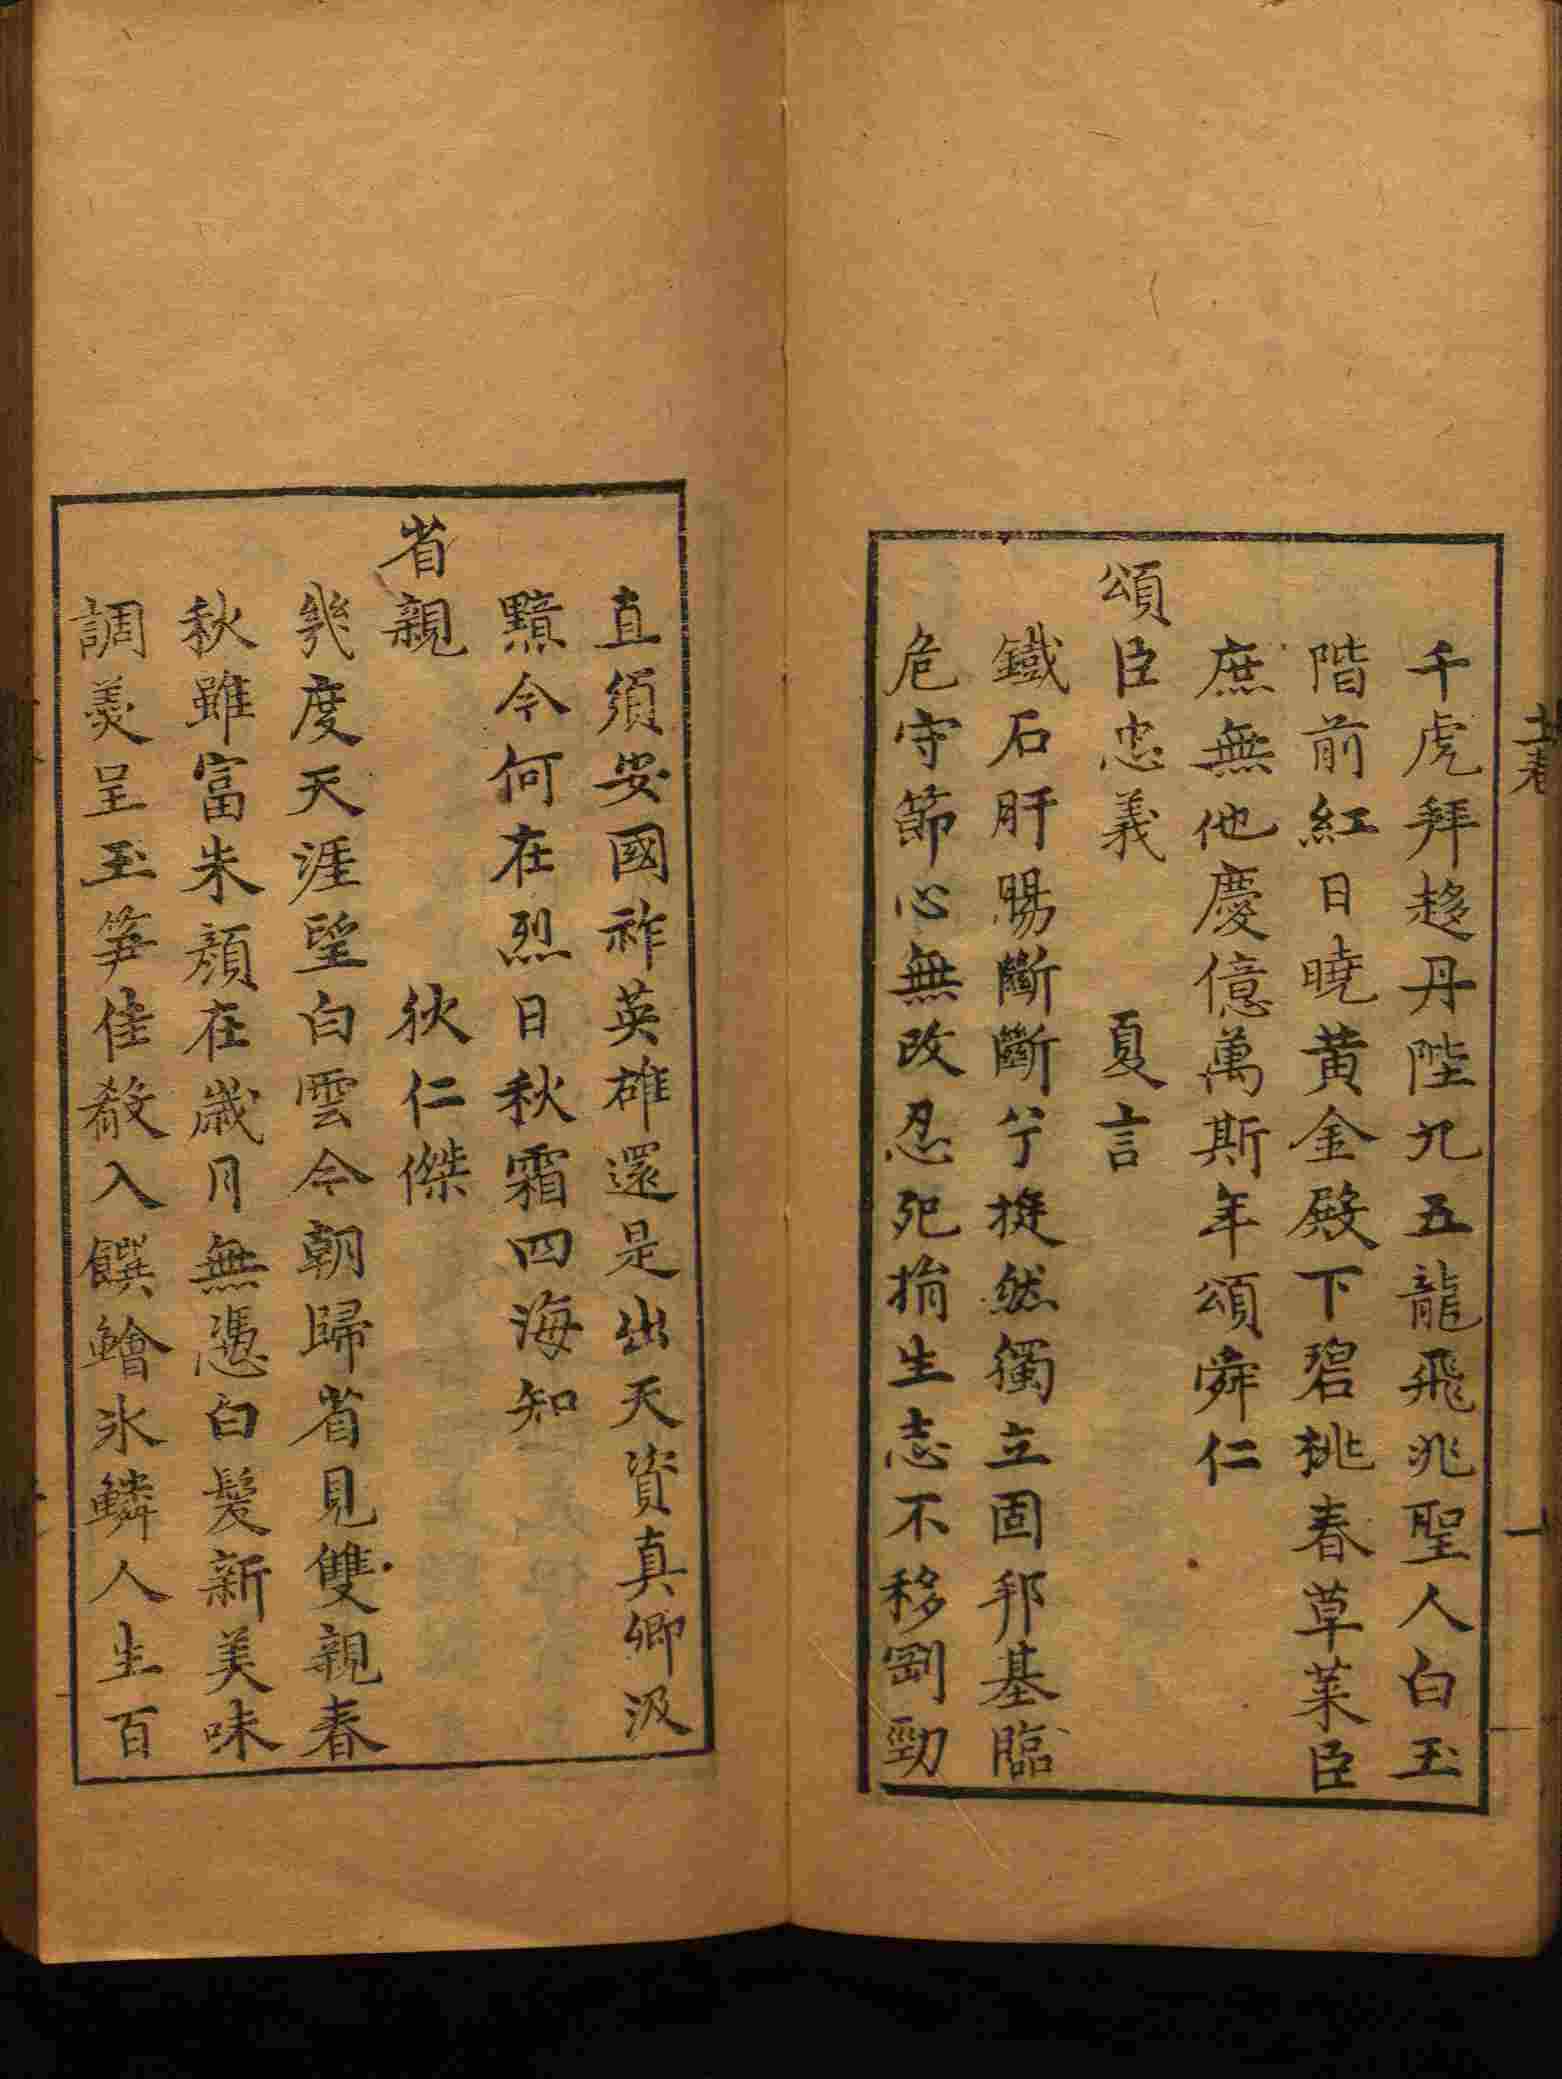 千虎拜趍丹陛九五龍飛兆聖人白玉
階前紅日曉黄金殿下碧桃春草莱臣
庶無他慶億萬斯年頌舜仁
頌臣忠義 夏言
鐵石肝腸斷斷兮挺然獨立固邦基臨
危守節心無改忍死捐生志不移剛勁
直須安國祚英雄還是出天資真卿汲
黯今何在烈日秋霜四海知
省親 狄仁傑
幾度天涯望白雲今朝歸省見雙親春
秋雖富朱顔在歲月無憑白髮新美味
調羮呈玉笋佳殽入饌鱠氷鱗人生百